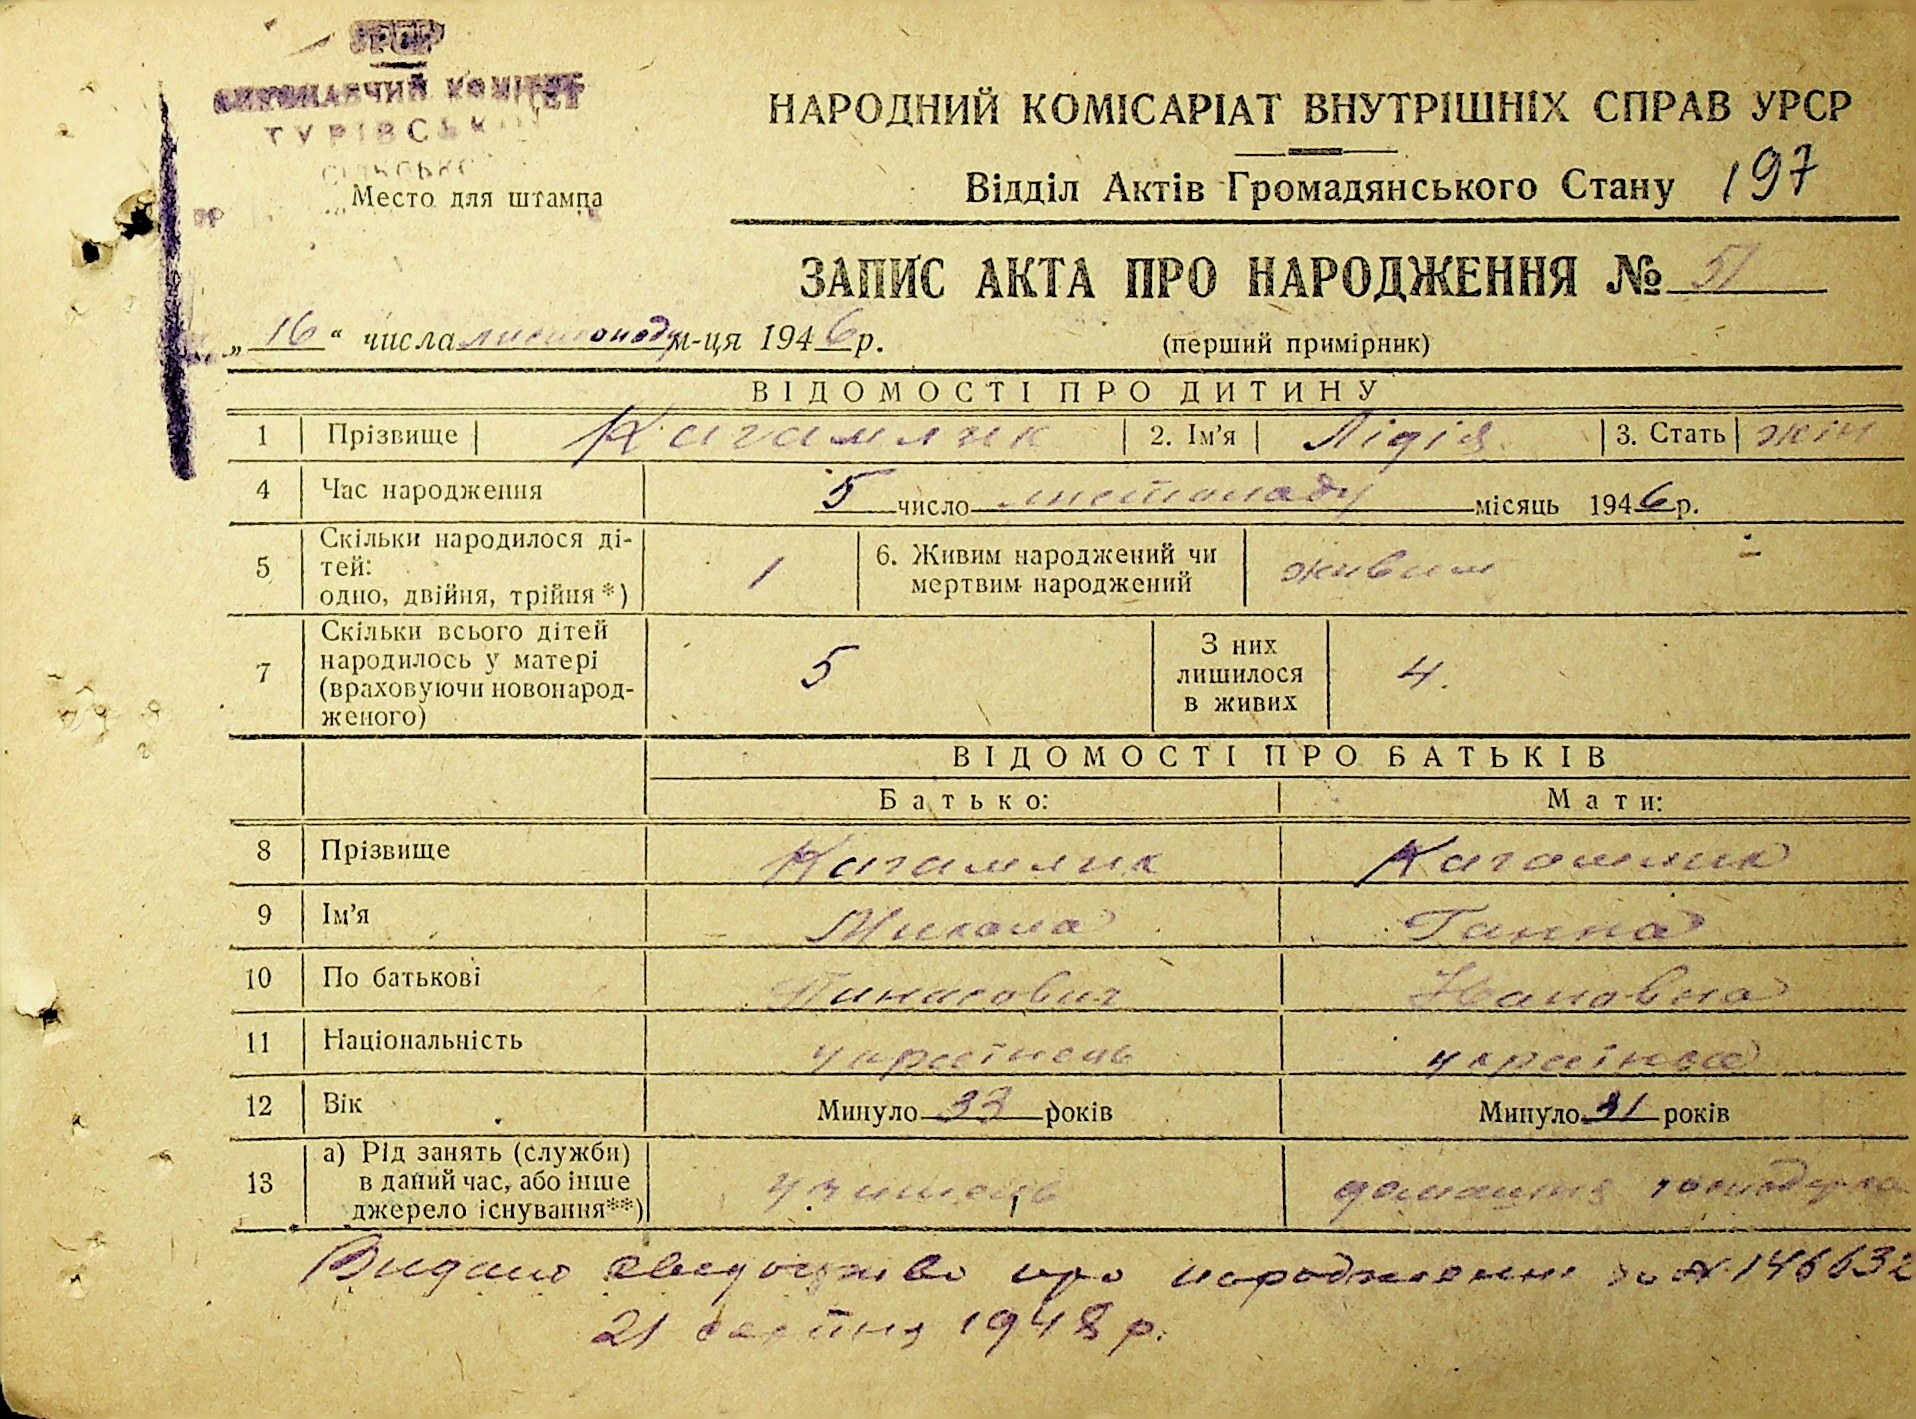 УРСР
ВИКОНАВЧИЙ КОМІТЕТ
ТУРІВСЬК
Место для штампа
НАРОДНИЙ КОМІСАРІАТ ВНУТРІШНІХ СПРАВ УРСР
Відділ Актів Громадянського Стану 197
ЗАПИС АКТА ПРО НАРОДЖЕННЯ № 51
„16“ числа листопаду м-ця 1946 р.
(перший примірник)
ВІДОМОСТІ ПРО ДИТИНУ
1 Прізвище Кагамлик 2. Ім’я Лідія 3. Стать жін
4 Час народження 5 число листопаду місяць 1946 р.
5 Скільки народилося ді-
тей:
одно, двійня, трійня*) 1
6. Живим народжений чи
мертвим народжений живим
7 Скільки всього дітей
народилось у матері
(враховуючи новонарод-
женого) 5
З них
лишилося
в живих 4.
ВІДОМОСТІ ПРО БАТЬКІВ
Батько: Мати:
8 Прізвище Кагамлик Кагамлик
9 Ім’я Микола Ганна
10 По батькові Панасович
11 Національність українець українка
12 Вік Минуло 33 років Минуло 31 років
13 а) Рід занять (служби)
в даний час, або інше
джерело існування**)
домашня господарка
Видано свидоцтво про народження за № 146632
21 серпня 1948 р.